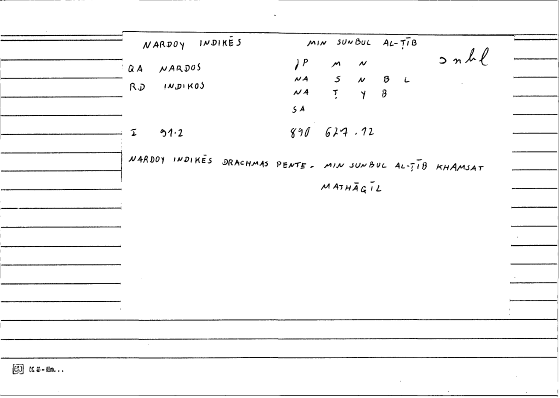 NARDOY INDIKĒS MIN SUNBUL AL-ṬĪB
snbl
QA NARDOS JP M N
RD INDIKOS NA S N B L
NA Ṭ Y B
SA
I 91.2 890 627.12
NARDOY INDIKĒS DRACHMAS PENTE. MIN SUNBUL AL-ṬĪB KHAMSAT
MATHĀQĪL